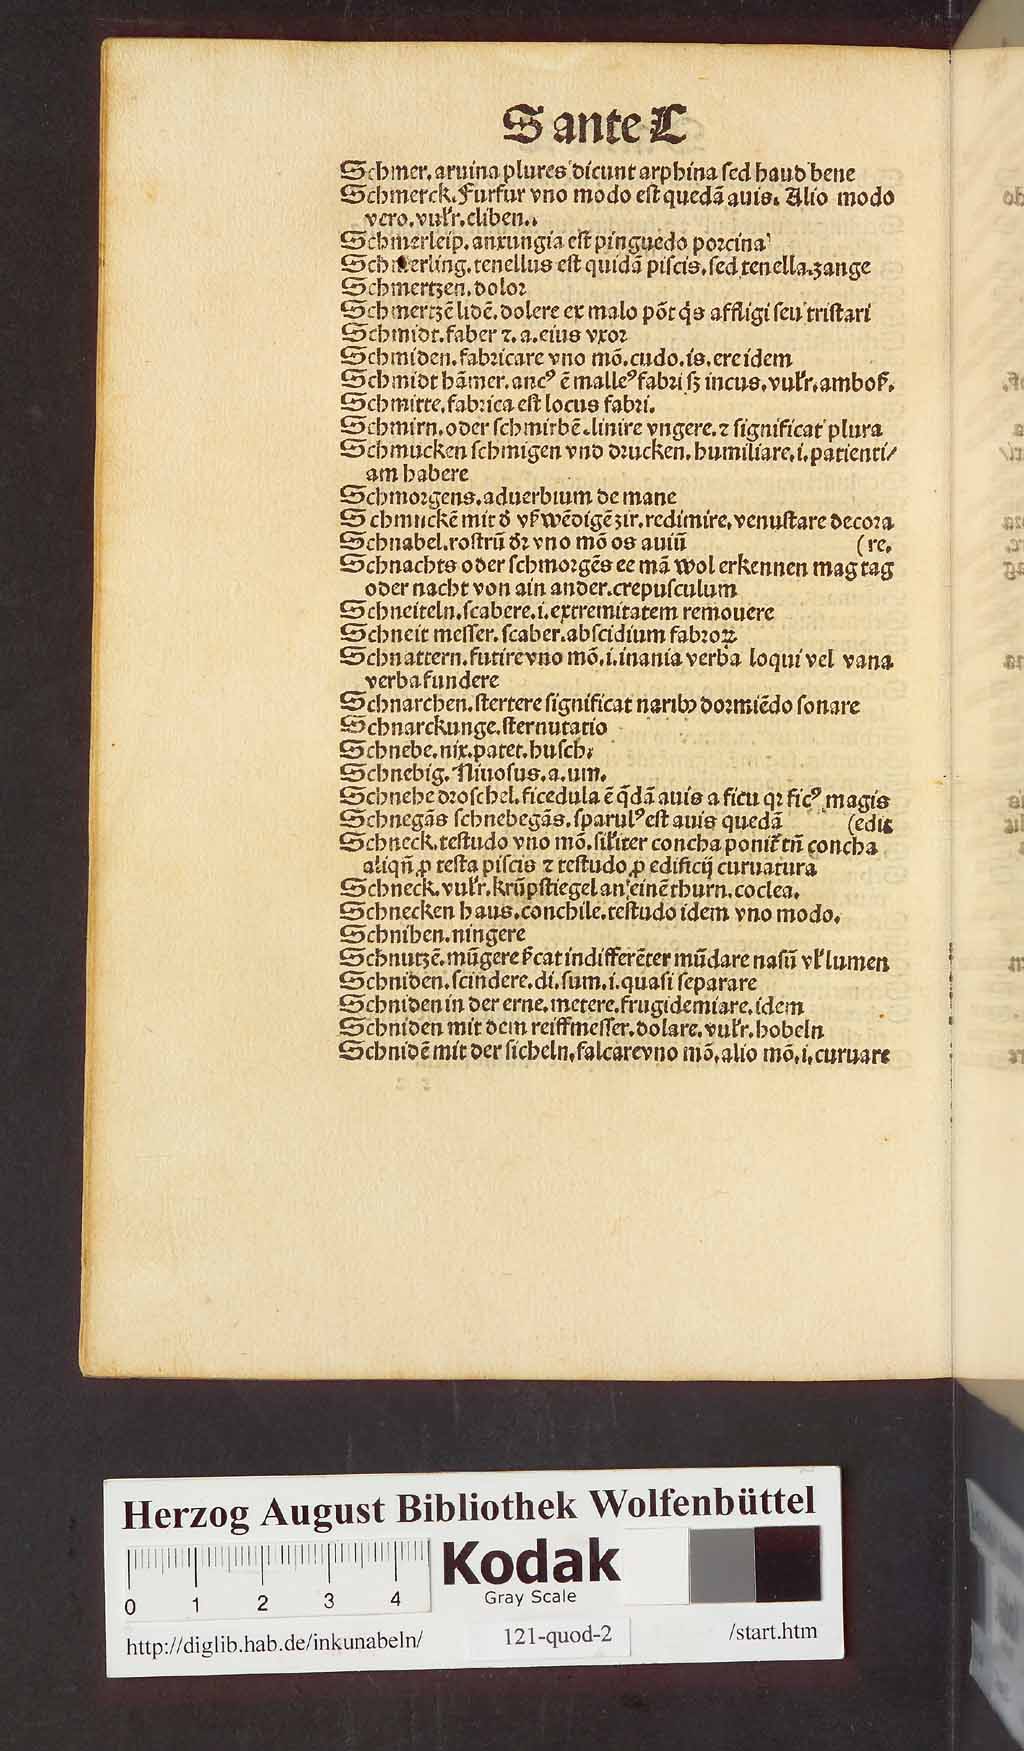 S ante C
Schmer. aruina plures dicunt arphina sed haud bene
Schmerck. Furfur vno modo est quedā auis. Alio modo
vero. vulr. cliben..
Schmerleip. anxungia est pinguedo porcina
Schmerling. tenellus est quidā piscis. sed tenella. zange
Schmertzen. dolor
Schmertzē lidē. dolere ex malo pōt q̇s affligi seu tristari
Schmidt. faber ⁊. a. eius vxor
Schmiden. fabricare vno mō. cudo. is. ere idem
Schmidt hāmer. ancꝰ ē malleꝰ fabri sꝫ incus. vulr. ambos.
Schmitte. fabrica est locus fabri.
Schmirn. oder schmirbē. linire vngere. ⁊ significat plura
Schmucken schmigen vnd drucken. humiliare. i. patienti/
am habere
Schmorgens. aduerbium de mane
Schmuckē mit d̕ wēdigē zir. redimire. venustare decora
Schnabel. rostrū dr̄ vno mō os auiū (re.
Schnachts oder schmorgēs ee mā wol erkennen mag tag
oder nacht von ain ander. crepusculum
Schneiteln. scabere. i. extremitatem remouere
Schneit messer. scaber. abscidium fabroꝝ
Schnattern. futire vno mō. i. inania verba loqui vel vana
verba fundere
Schnarchen. stertere significat naribꝫ dormiēdo sonare
Schnarckunge. sternutatio
Schnebe. nix. patet. husch.
Schnebig. Niuosus. a. um.
Schnebe droschel. ficedula ē q̄dā auis a ficu qꝛ ficꝰ magis
Schnegās schnebegās. sparulꝰ est auis quedā (edit
Schneck. testudo vno mō. silr̄iter concha ponit̄ tn̄ concha
aliqn̄ ꝓ testa piscis ⁊ testudo ꝓ edificij curuatura
Schneck. vulr. krūpstiegel an einē thurn. coclea.
Schnecken haus. conchile. testudo idem vno modo.
Schniben. ningere
Schnutzē. mūgere s̄cat indifferēter mūdare nasū vl̄ lumen
Schniden. scindere. di. sum. i. quasi separare
Schniden in der erne. metere. frugidemiare. idem
Schniden mit dem reiffmesser. dolare. vulr. hobeln
Schnidē mit der sicheln. falcare vno mō. alio mō. i. curuare
Herzog August Bibliothek Wolfenbüttel
Kodak
Gray Scale
0 1 2 3 4
http://diglib.hab.de/inkunabeln/ 121-quod-2 /start.htm